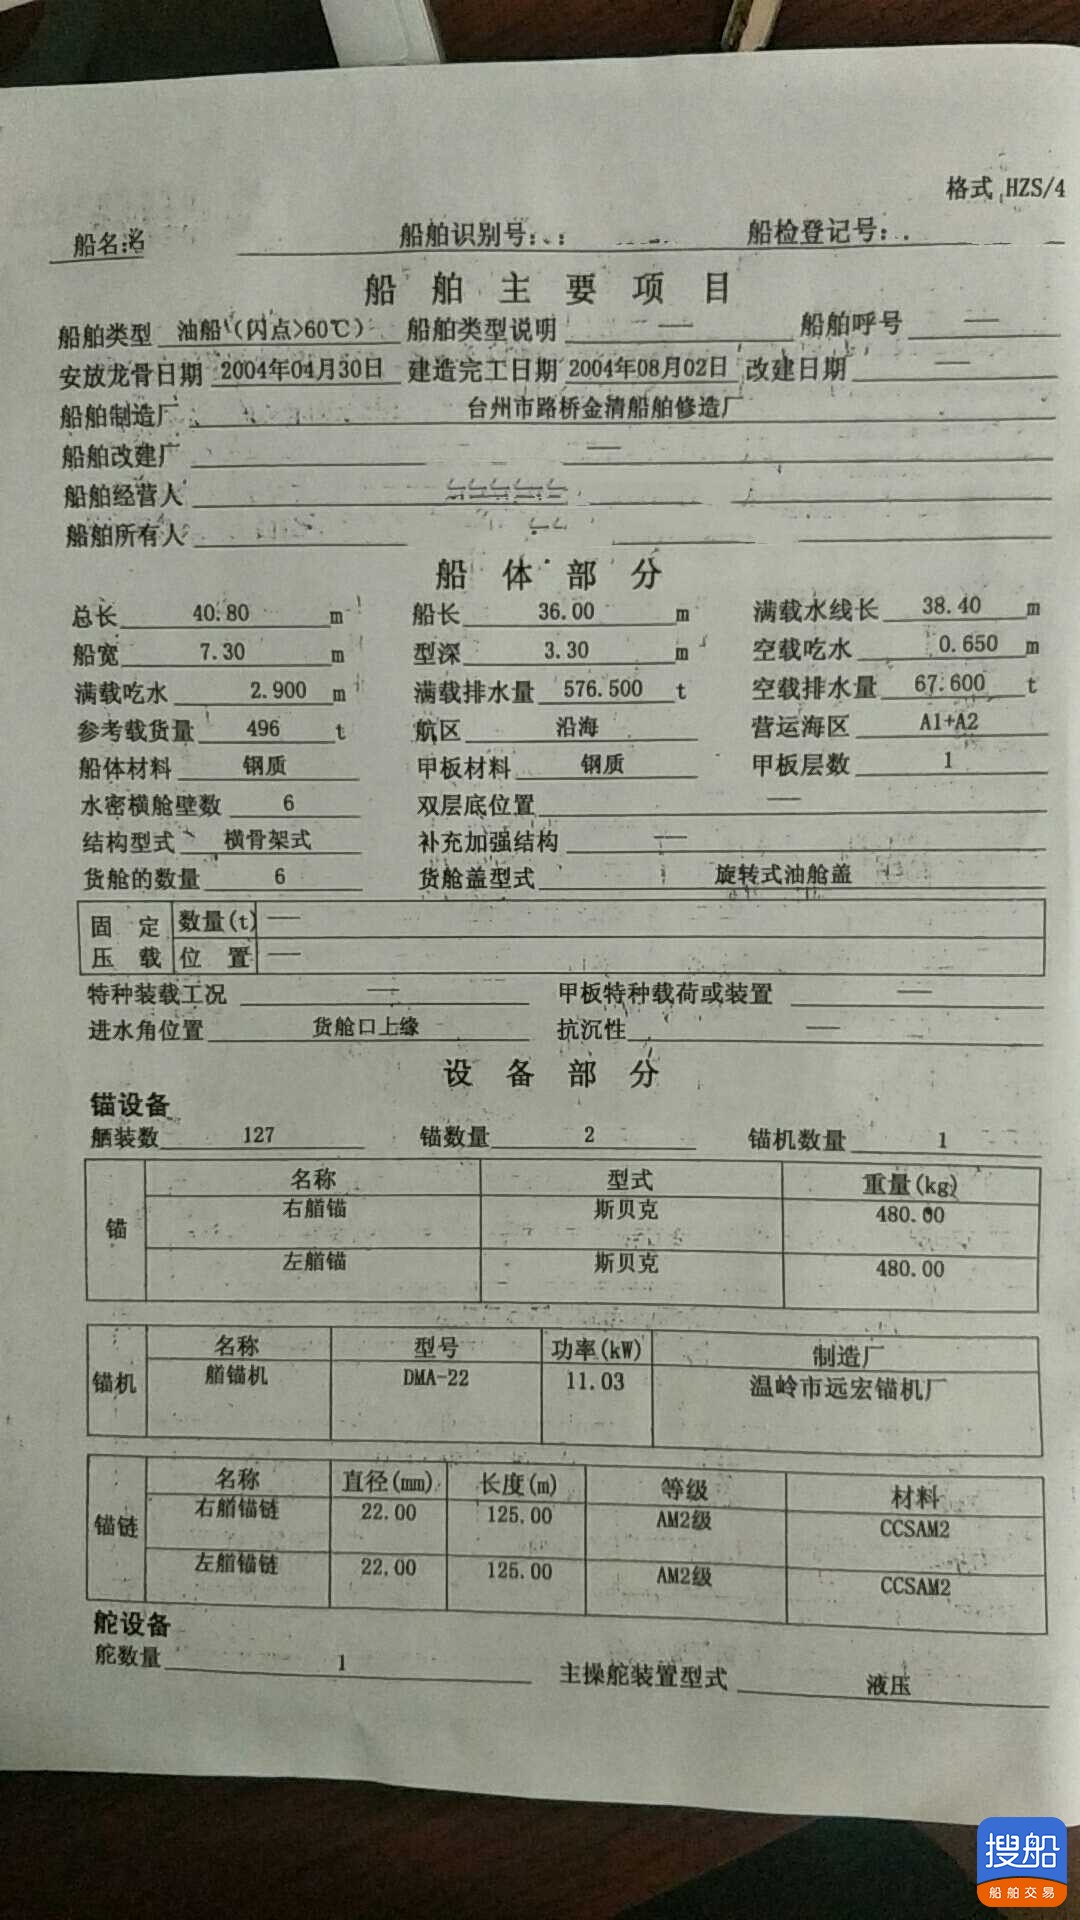 格式 HZS/4
船名: 船舶识别号: 船检登记号:
船舶主要项目
船舶类型 油船（闪点>60℃） 船舶类型说明 — 船舶呼号 —
安放龙骨日期 2004年04月30日 建造完工日期 2004年08月02日 改建日期 —
船舶制造厂 台州市路桥金清船舶修造厂
船舶改建厂 —
船舶经营人
船舶所有人
船体部分
总长 40.80 m 船长 36.00 m 满载水线长 38.40 m
船宽 7.30 m 型深 3.30 m 空载吃水 0.650 m
满载吃水 2.900 m 满载排水量 576.500 t 空载排水量 67.600 t
参考载货量 496 t 航区 沿海 营运海区 A1+A2
船体材料 钢质 甲板材料 钢质 甲板层数 1
水密横舱壁数 6 双层底位置 —
结构型式 横骨架式 补充加强结构 —
货舱的数量 6 货舱盖型式 旋转式油舱盖
固定 数量(t) —
压载 位置 —
特种装载工况 — 甲板特种载荷或装置 —
进水角位置 货舱口上缘 抗沉性 —
设备部分
锚设备
舾装数 127 锚数量 2 锚机数量 1
名称 型式 重量(kg)
锚 右艏锚 斯贝克 480.00
左艏锚 斯贝克 480.00
名称 型号 功率(kW) 制造厂
锚机 艏锚机 DMA-22 11.03 温岭市远宏锚机厂
名称 直径(mm) 长度(m) 等级 材料
锚链 右艏锚链 22.00 125.00 AM2级 CCSAM2
左艏锚链 22.00 125.00 AM2级 CCSAM2
舵设备
舵数量 1 主操舵装置型式 液压
搜船
船舶交易